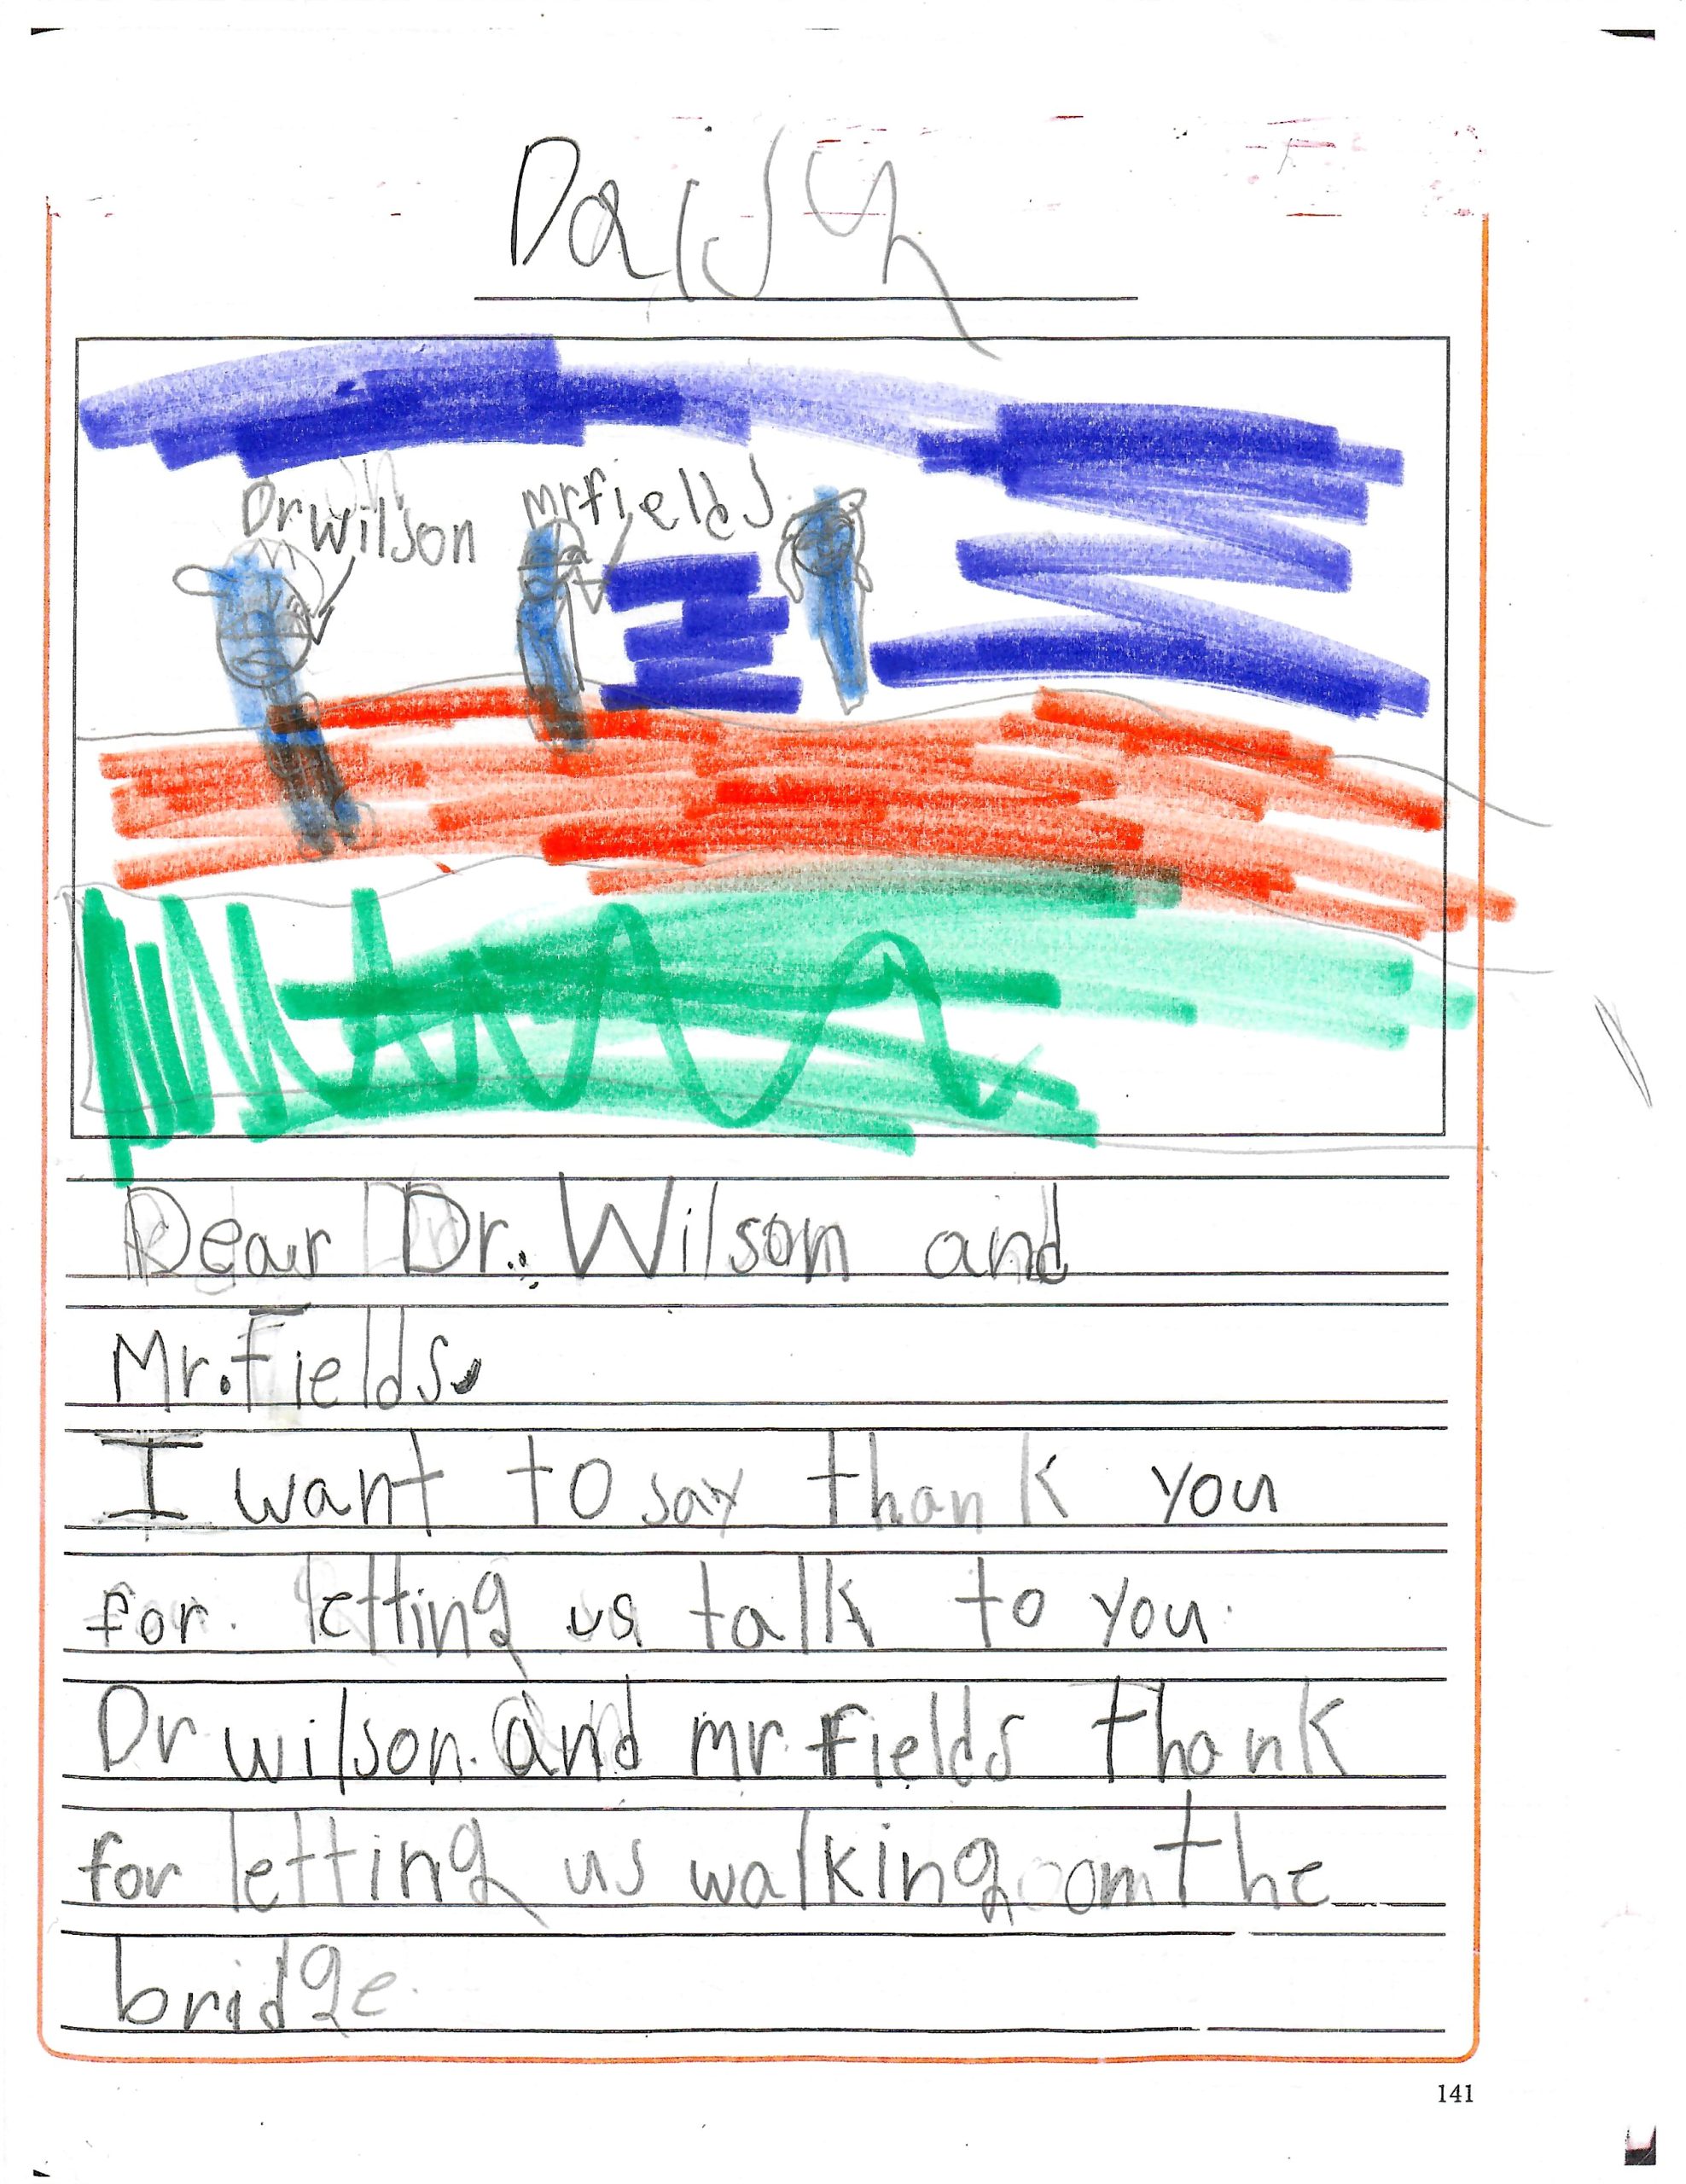 Daisy
Dr wilson
mr fields
Dear Dr. Wilson and
Mr. Fields.
I want to say thank you
for. letting us talk to you.
Dr wilson. and mr. Fields thank
for letting us walking om the
bridge.
141